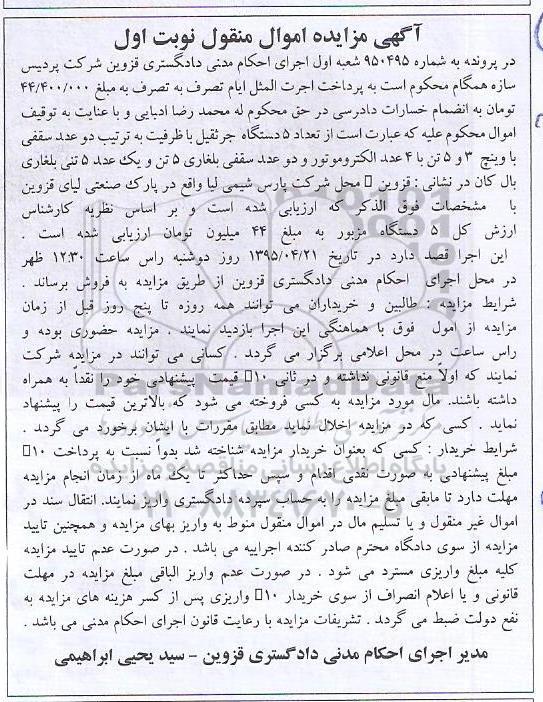 آگهی مزایده اموال منقول نوبت اول
در پرونده به شماره ۹۵۰۴۹۵ شعبه اول اجرای احکام مدنی دادگستری قزوین شرکت پردیس
سازه همگام محکوم است به پرداخت اجرت المثل ایام تصرف به تصرف به مبلغ ۴۴/۴۰۰/۰۰۰
تومان به انضمام خسارات دادرسی در حق محکوم له محمد رضا ادبایی و با عنایت به توقیف
اموال محکوم علیه که عبارت است از تعداد ۵ دستگاه جرثقیل با ظرفیت به ترتیب دو عدد سقفی
با وینچ ۳ و ۵ تن با ۴ عدد الکتروموتور و دو عدد سقفی بلغاری ۵ تن و یک عدد ۵ تنی بلغاری
بال کان در نشانی : قزوین محل شرکت پارس شیمی لیا واقع در پارک صنعتی لیای قزوین
با مشخصات فوق الذکر که ارزیابی شده است و بر اساس نظریه کارشناس
ارزش کل ۵ دستگاه مزبور به مبلغ ۴۴ میلیون تومان ارزیابی شده است .
این اجرا قصد دارد در تاریخ ۱۳۹۵/۰۴/۲۱ روز دوشنبه راس ساعت ۱۲:۳۰ ظهر
در محل اجرای احکام مدنی دادگستری قزوین از طریق مزایده به فروش برساند .
شرایط مزایده : طالبین و خریداران می توانند همه روزه تا پنج روز قبل از زمان
مزایده از امول فوق با هماهنگی این اجرا بازدید نمایند . مزایده حضوری بوده و
راس ساعت در محل اعلامی برگزار می گردد . کسانی می توانند در مزایده شرکت
نمایند که اولاً منع قانونی نداشته و در ثانی ۱۰ قیمت پیشنهادی خود را نقداً به همراه
داشته باشند. مال مورد مزایده به کسی فروخته می شود که بالاترین قیمت را پیشنهاد
نماید . کسی که در مزایده اخلال نماید مطابق مقررات با ایشان برخورد می گردد .
شرایط خریدار : کسی که بعنوان خریدار مزایده شناخته شد بدواً نسبت به پرداخت ۱۰
مبلغ پیشنهادی به صورت نقدی اقدام و سپس حداکثر تا یک ماه از زمان انجام مزایده
مهلت دارد تا مابقی مبلغ مزایده را به حساب سپرده دادگستری واریز نمایند. انتقال سند در
اموال غیر منقول و یا تسلیم مال در اموال منقول منوط به واریز بهای مزایده و همچنین تایید
مزایده از سوی دادگاه محترم صادر کننده اجراییه می باشد . در صورت عدم تایید مزایده
کلیه مبلغ واریزی مسترد می شود . در صورت عدم واریز الباقی مبلغ مزایده در مهلت
قانونی و یا اعلام انصراف از سوی خریدار ۱۰ واریزی پس از کسر هزینه های مزایده به
نفع دولت ضبط می گردد . تشریفات مزایده با رعایت قانون اجرای احکام مدنی می باشد .
مدیر اجرای احکام مدنی دادگستری قزوین - سید یحیی ابراهیمی